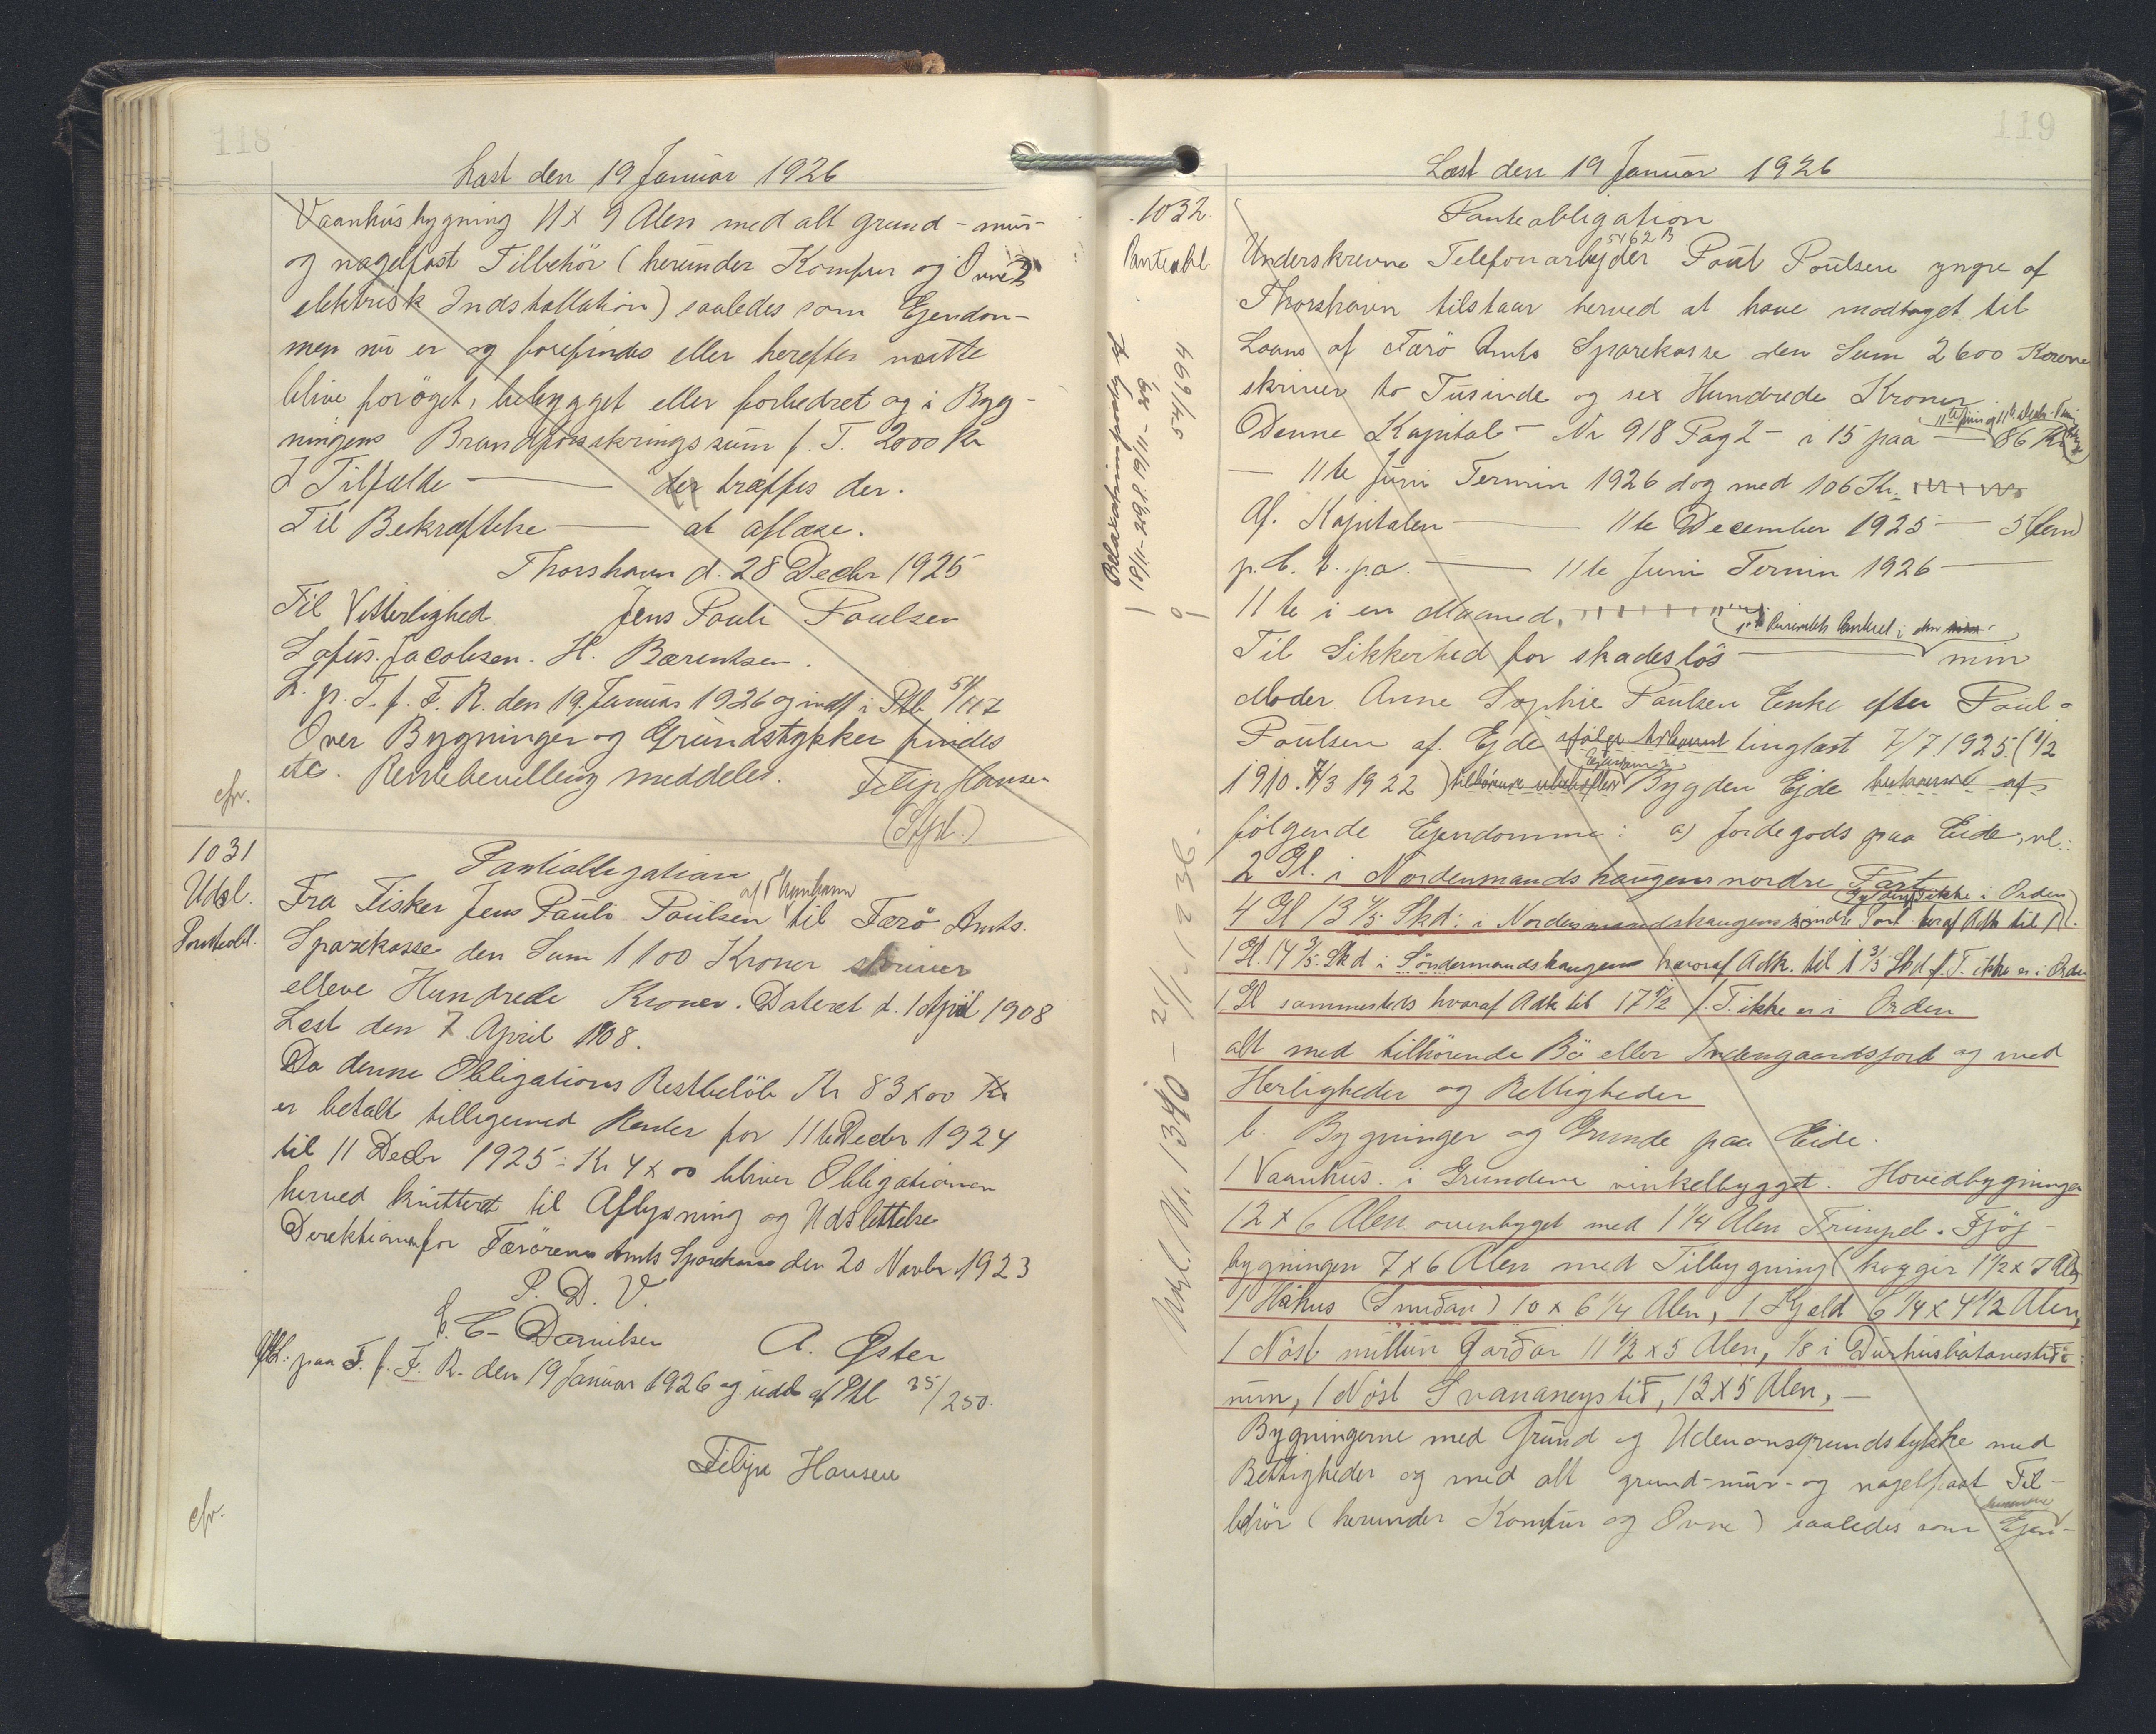 118
Læst den 19 Januar 1926
Vaanhusbygning 11 x 9 Alen med alt grund- mur-
og nagelfast Tilbehör (herunder Komfur og Ovne
elektrisk Indstallation) saaledes som Ejendom-
men nu er og forefindes eller herefter maatte
blive foröget, bebygget eller forbedret og i Byg-
ningens Brandforsikringssum f. T. 2000 Kr
I Tilfælde — der træffes der.
Til Bekræftelse — at aflæse.
Thorshavn d. 28 Decbr 1925
Til Vitterlighed Jens Pauli Poulsen
Lofus. Jacobsen. H. Bærentsen.
L. p. T. f. F. R. den 19. Januar 1926 og indf i Ptb 51/117
Over Bygninger og Grundstykker findes
etc. Rentebevilling meddeles. Filip Hansen
cfr. (Stpl.)
1031
Udsl.
Panteobl.
Pantiobligation
Fra Fisker Jens Pauli Poulsen af Thorshavn til Færö Amts.
Sparekasse den Sum 1100 Kroner skriver
elleve Hundrede Kroner. Dateret d. 1 April 1908
Læst den 7 April 1908.
Da denne Obligations Restbelöb Kr 83 x 00 Kr
er betalt tilligemed Renter for 11te Decbr 1924
til 11 Decbr 1925 = Kr 4 x 00 bliver Obligationen
herved kvitteret til Aflysning og Udslettelse
Direktionen for Færörene Amts Sparekasse den 20 Novbr 1923
P. D. V.
C. C. Danielsen A. Øster
Afl: paa T. f. F. R. den 19 Januar 1926 og udsl af Ptb 35/250.
Filip Hansen
cfr.
119
Læst den 19 Januar 1926
1032.
Panteobl
Panteobligation
5462 B
Underskrevne Telefonarbejder Poul Poulsen yngre af
Thorshavn tilstaar herved at have modtaget til
Laans af Færö Amts Sparekasse den Sum 2600 Kroner
skriver to Tusinde og sex Hundrede Kroner
Denne Kapital — Nr 918 Pag 2 — i 15 paa — 86 Kr
— 11te Juni Termin 1926 dog med 106 Kr.
Af. Kapitalen — 11te December 1925 — 5 (fem)
p. C. t. p.a. — 11te Juni Termin 1926 —
11te i en Maaned,
Til Sikkerhed for skadeslös — min
Moder Anne Sophie Poulsen Enke efter Poul
Poulsen af Ejde ifölge Arkument tinglæst 7/7 1925 (1/2
1910. 7/3 1922) Bygden Ejde bestaaende af
fölgende Ejendomme: a) Jordegods paa Eide, vl.:
2 Gl. i Nordenmandshaugens nordre Part
4 Gl 13 4/5 Skd: i Nordenmandshaugens söndre Part heraf Adk til 1
1 Gl. 14 3/5 Skd i Söndermandshaugen hvoraf Adk. til 1 3/5 Skd f. T. ikke er i Orden
1 Gl sammesteds hvoraf Adk til 17 1/2 f. T. ikke er i Orden
alt med tilhörende Bö eller Indengaardsjord og med
Herligheder og Rettigheder
b. Bygninger og Grunde paa Eide.
1 Vaanhus. i Grundene vinkelbygget. Hovedbygningen
12 x 6 Alen ovenbygget med 1 1/4 Alen Trimpel. Fjöj-
bygningen 7 x 6 Alen med Tilbygning (koygir 1 1/2 x 7 Alen
1 Hákus (Smiðan) 10 x 6 1/4 Alen, 1 Kjald 6 1/4 x 4 1/2 Alen,
1 Nöst millun Garðar 11 1/2 x 5 Alen, 1/8 i Dürhusbátaneystið-
num, 1 Nöst Svananeystið, 12 x 5 Alen, —
Bygningerne med Grund og Udenomsgrundstykke med
Rettigheder og med alt grund-mur- og nagelfast Til-
behör (herunder Komfur og Ovne) saaledes som Ejen-
Relaxationspaategn
Udsl. Nr. 1340 - 21/11 1236.